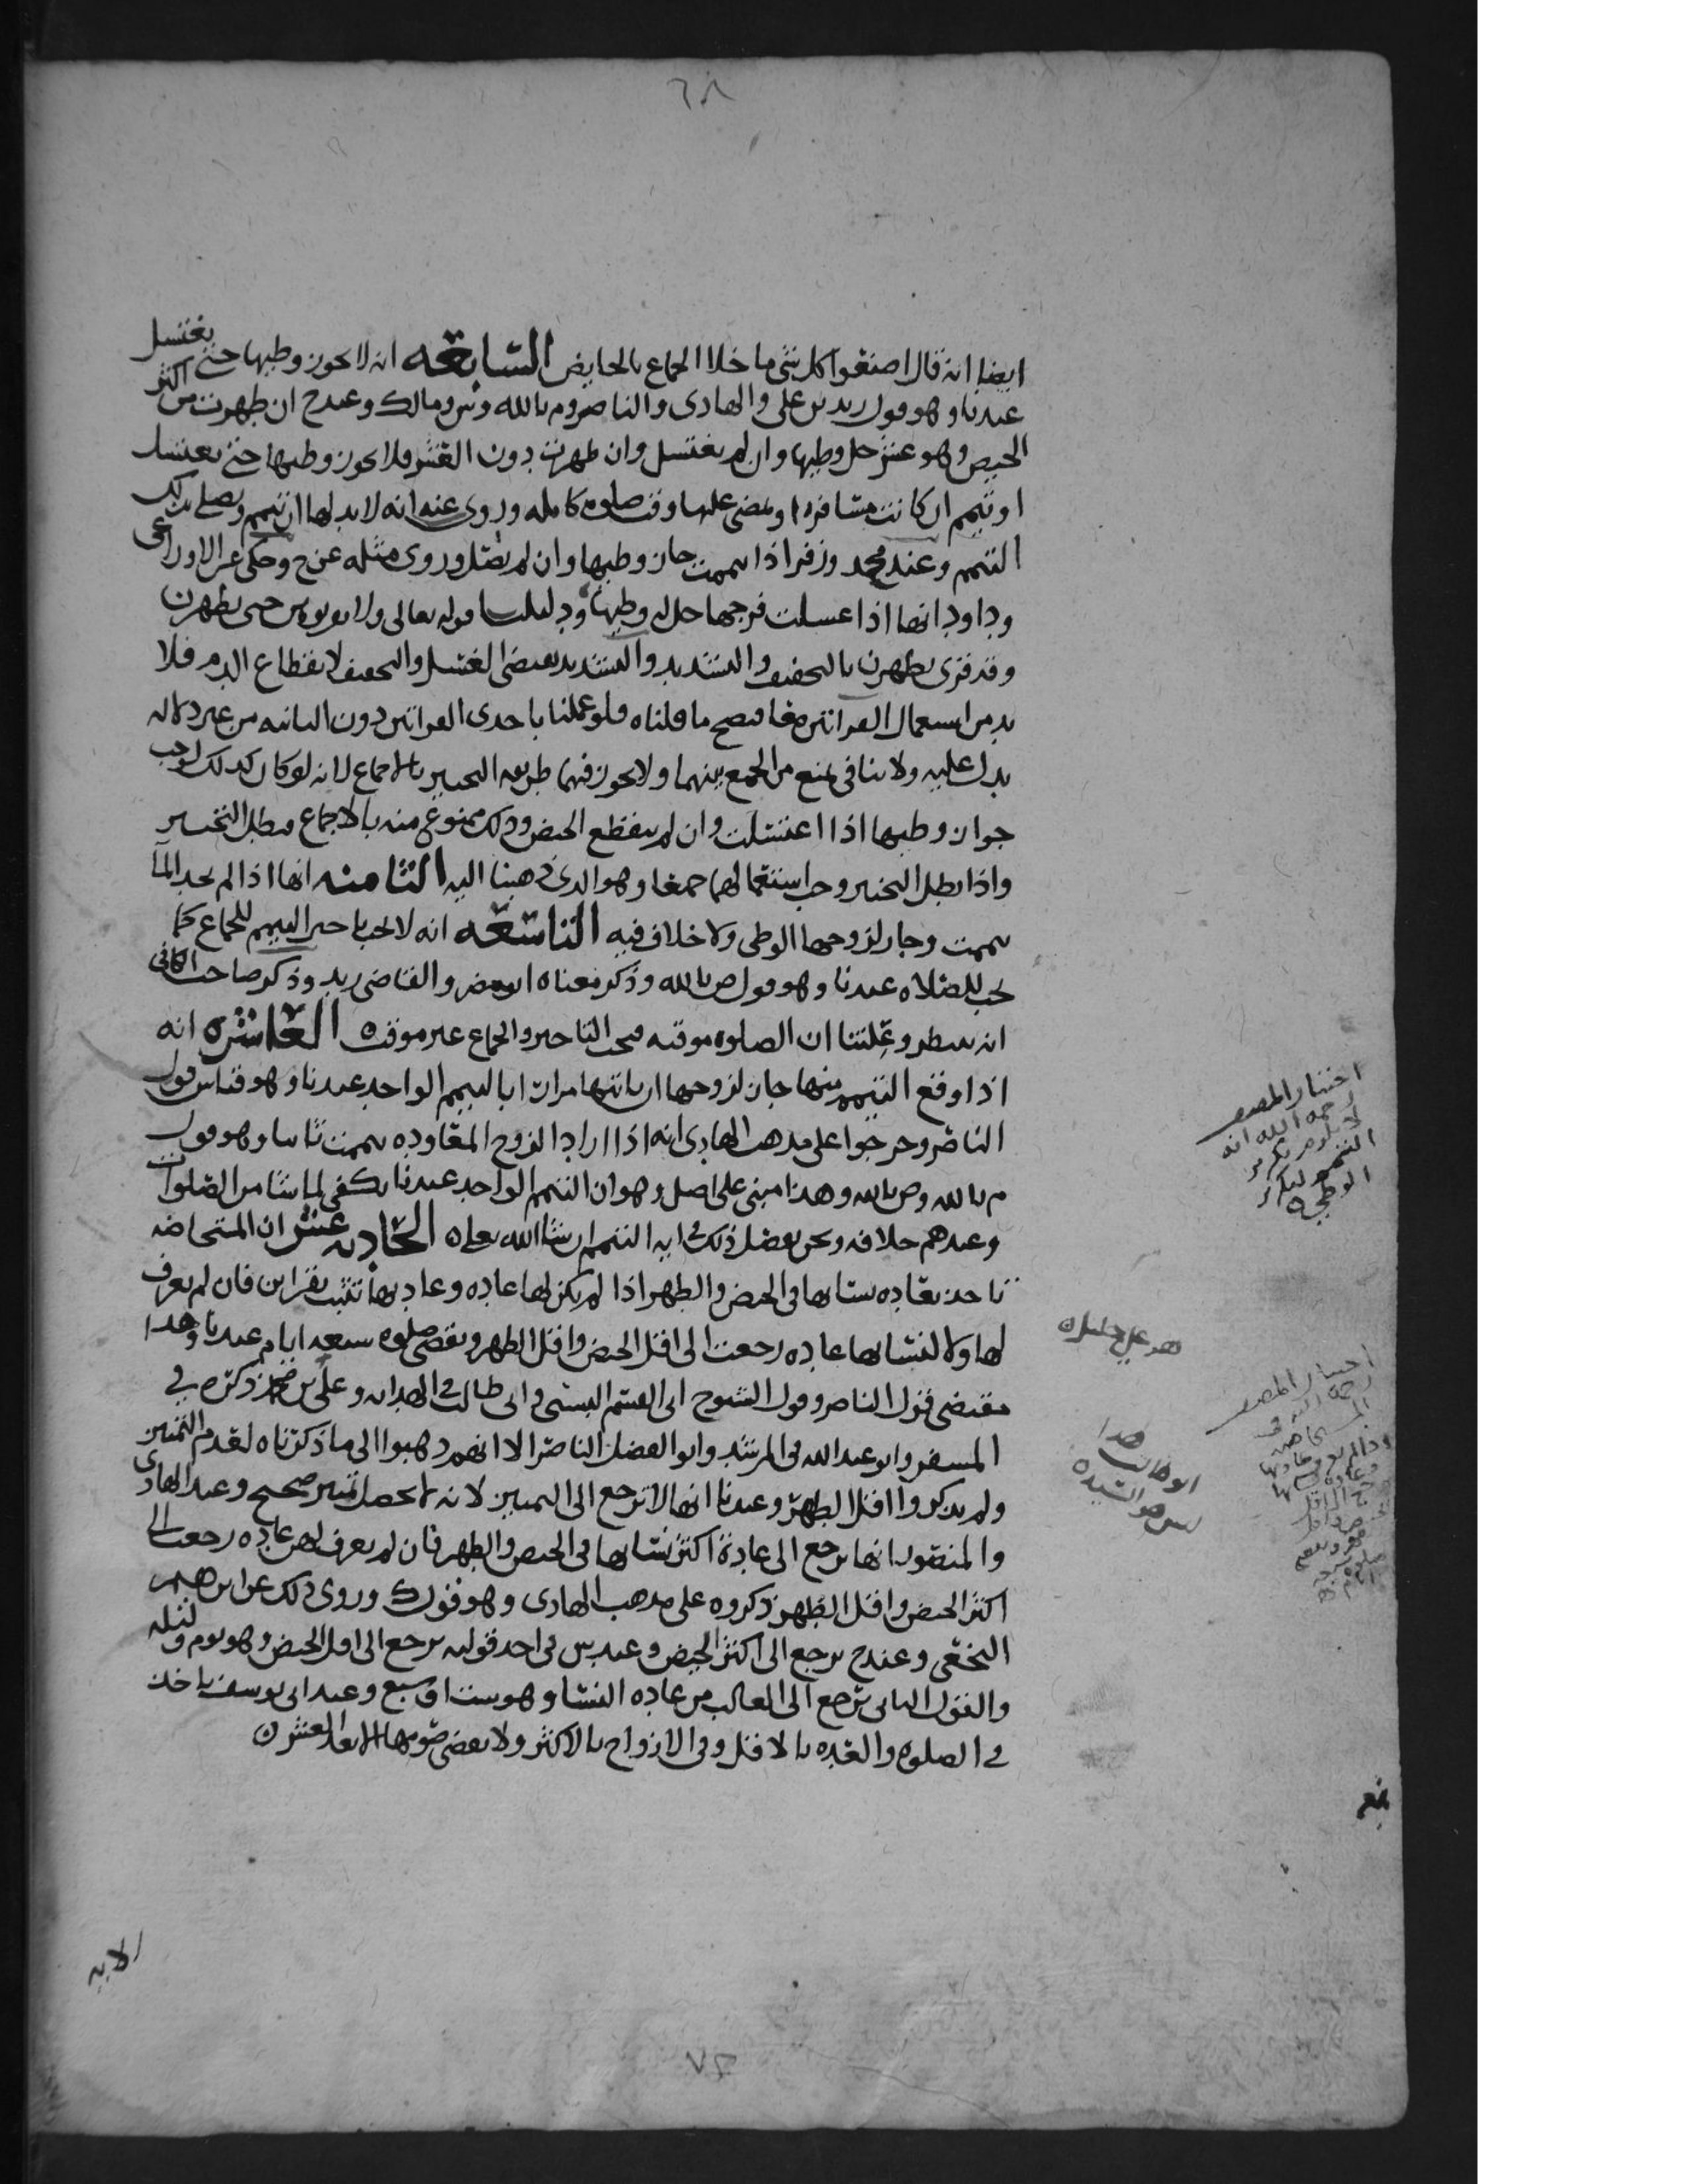 ٦٨
ايضا انه قال اصنعوا كل شي ما خلا الجماع بالحايض السابعه انه لا يجوز وطيها حتى يغتسل
عندنا وهو قول زيد بن علي والهادي والناصر وم بالله وش ومالك وعند ح ان طهرت من اكثر
الحيض وهو عشر حل وطيها وان لم يغتسل وان طهرت بدون العشر فلا يجوز وطيها حتى يغتسل
او تيمم ان كانت مسافره او يمضي عليها وقت صلوه كامله وروي عنه انه لا بد لها ان تيمم وتصلي بذلك
التيمم وعند محمد وزفر اذا تيممت جاز وطيها وان لم تصل وروي مثله عن ح وحكي عن الاوزاعي
وداود انها اذا غسلت فرجها حل له وطيها ودليلنا قوله تعالى ولا تقربوهن حتى يطهرن
وقد قري يطهرن بالتخفيف والتشديد والتشديد يقتضي الغسل والتخفيف لانقطاع الدم فلا
بد من استعمال القراتين معا فيصح ما قلناه فلو عملنا باحدى القراتين دون الثانيه من غير دلاله
يدل عليه ولا تنافي يمنع من الجمع بينهما ولا يجوز فيهما طريقه التخيير بالاجماع لانه لو كان كذلك لوجب
جواز وطيها اذا اغتسلت وان لم ينقطع الحيض وذلك ممنوع منه بالاجماع فبطل التخيير
واذا بطل التخيير وجب استعمالهما جمعا وهو الذي ذهبنا اليه الثامنه انها اذا لم تجد المآ
تيممت وجاز لزوجها الوطي ولا خلاف فيه التاسعه انه لا يجب تاخير التيمم للجماع كما
يجب للصلاه عندنا وهو قول ص بالله وذكر معناه ابو مضر والقاضي زيد وذكر صاحب الكافي
انه ينتظر وعلتنا ان الصلوه موقته فيجب التاخير والجماع غير موقت ه العاشره انه
اذا وقع التيمم منها جاز لزوجها ان ياتيها مرارا بالتيمم الواحد عندنا وهو قياس قول
الناصر وخرجوا على مذهب الهادي انه اذا اراد الزوج المعاوده تيممت ثانيا وهو قول
م بالله وص بالله وهذا مبني على اصل وهو ان التيمم الواحد عندنا يكفي لما شا من الصلوات
وعندهم خلافه ونحن نفصل ذلك في ايه التيمم ان شا الله تعلى ه الحاديه عشر ان المستحاضه
تاخذ بعاده نسايها في الحيض والطهر اذا لم يكن لها عاده وعادتها تثبت بقراين فان لم يعرف
لها ولا لنسايها عاده رجعت الى اقل الحيض واقل الطهر وتقضي صلوه سبعه ايام عندنا وهذا
مقتضى قول الناصر وقول الشيوخ ابي القسم البستي وابي طالب في الهدايه وعلي بن ذكره في
المسفر وابو عبد الله في المرشد وابو الفضل الناصر الا انهم ذهبوا الى ما ذكرناه لعدم التمييز
ولم يذكروا اقل الطهر وعندنا انها لا ترجع الى التمييز لانه لا يحصل تمييز صحيح وعند الهادي
والمنصور انها ترجع الى عادة اكثر نسايها في الحيض والطهر فان لم يعرف لهن عاده رجعت الى
اكثر الحيض واقل الطهر ذكروه على مذهب الهادي وهو قول ك وروي ذلك عن ابرهيم
النخعي وعند ح ترجع الى اكثر الحيض وعند ش في احد قوليه ترجع الى اقل الحيض وهو يوم وليله
والقول الثاني ترجع الى الغالب من عاده النسا وهو ست او سبع وعند ابي يوسف تاخذ
في الصلوه والعده بالاقل وفي الازواج بالاكثر ولا تقضي صومها الا بعد العشر ه
اختيار المصنف
رحمه الله انه
لا يلزم تكرير
التيمم لتكرير
الوطي ه
هو علي خليل ه
ابو طالب هذا
ليس هو السيد ه
اختيار المصنف
لانه
٧٤